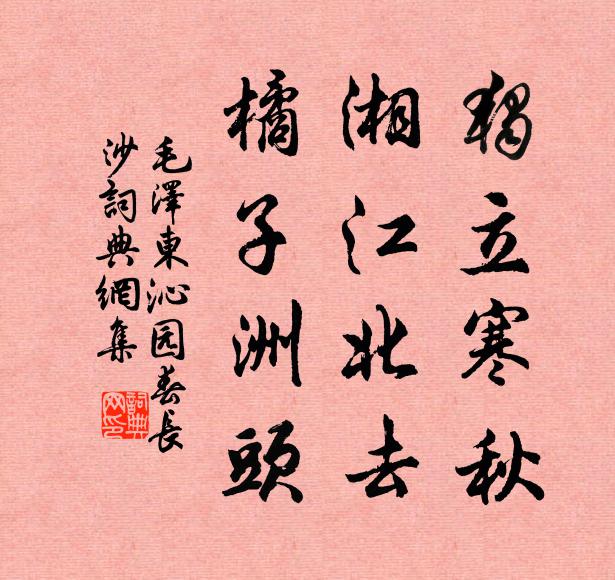 獨立寒秋
湘江北去
橘子洲頭
毛澤東沁园春長
沙詞典網集
詞典网印